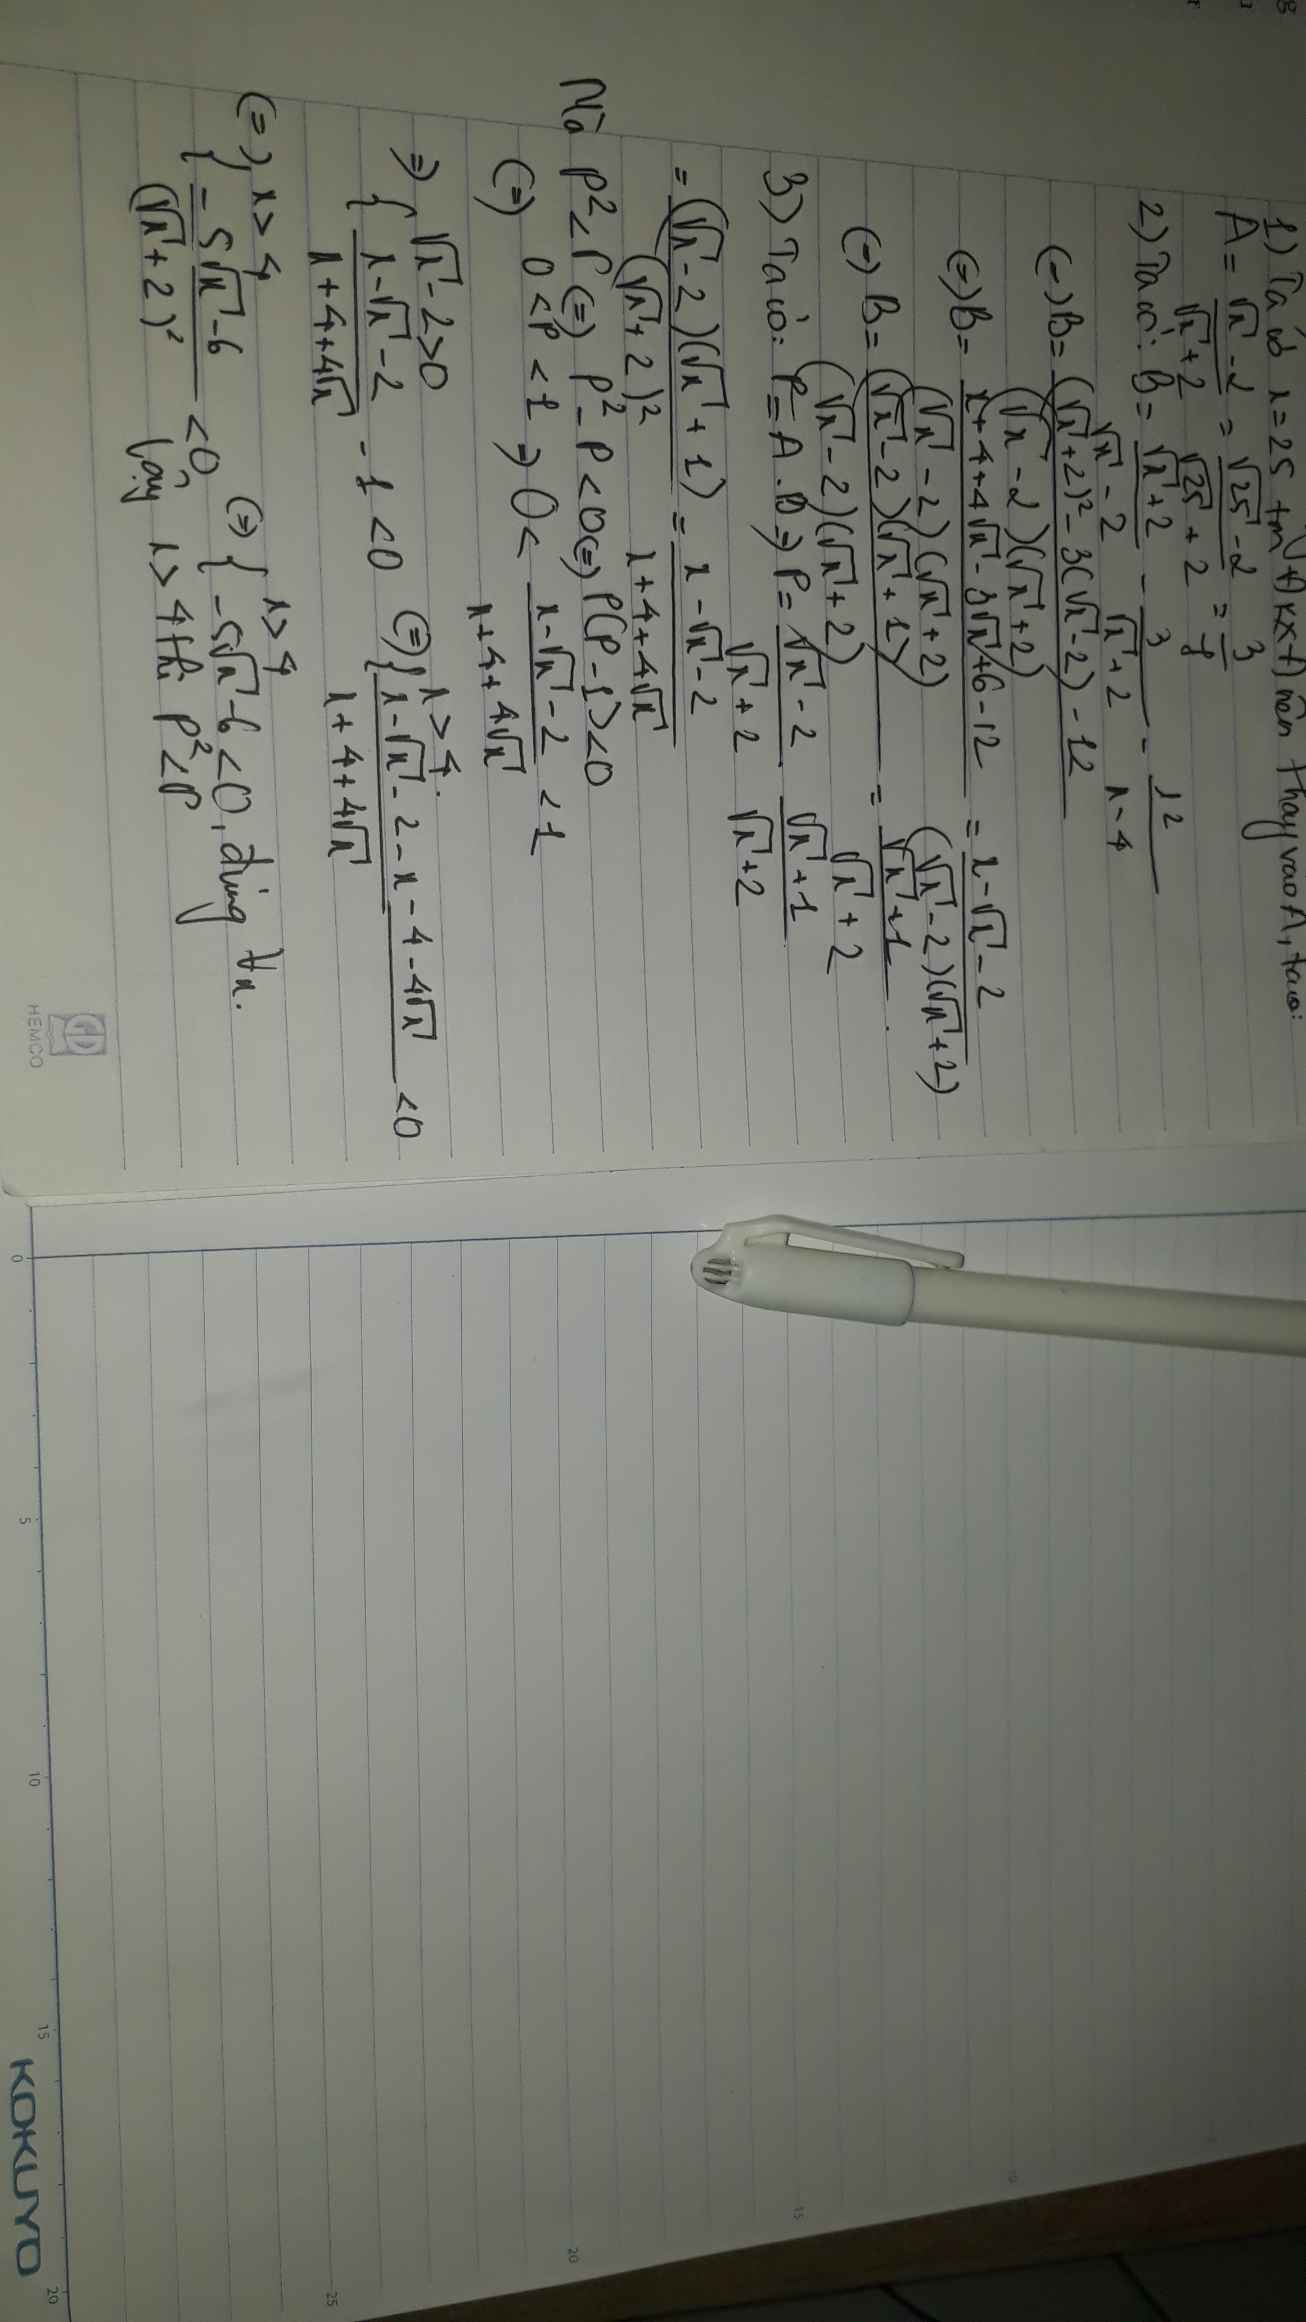 1) Ta có x = 25 tm (t) kxt) nên thay vào A, ta có:
A = (√x - 2)/(√x + 2) = (√25 - 2)/(√25 + 2) = 3/7
2) Ta có: B = (√x + 2)/(√x - 2) - 3/(√x + 2) - 12/(x - 4)
(=) B = ((√x + 2)² - 3(√x - 2) - 12)/((√x - 2)(√x + 2))
(=) B = (x + 4 + 4√x - 3√x + 6 - 12)/((√x - 2)(√x + 2)) = (x - √x - 2)/((√x - 2)(√x + 2))
(=) B = ((√x - 2)(√x + 1))/((√x - 2)(√x + 2)) = (√x + 1)/(√x + 2).
3) Ta có: P = A . B => P = (√x - 2)/(√x + 2) . (√x + 1)/(√x + 2)
= ((√x - 2)(√x + 1))/(√x + 2)² = (x - √x - 2)/(x + 4 + 4√x)
Mà P² < P (=) P² - P < 0 (=) P(P - 1) < 0
(=) 0 < P < 1 => 0 < (x - √x - 2)/(x + 4 + 4√x) < 1
=> { √x - 2 > 0
(x - √x - 2)/(x + 4 + 4√x) - 1 < 0 (=) { x > 4.
(x - √x - 2 - x - 4 - 4√x)/(x + 4 + 4√x) < 0
(=) { x > 4
(-5√x - 6)/(√x + 2)² < 0 (=) { x > 4
-5√x - 6 < 0, đúng ∀x.
Vậy x > 4 thì P² < P
HEMCO
0 5 10 15 20
KOKUYO
10 15 20 25